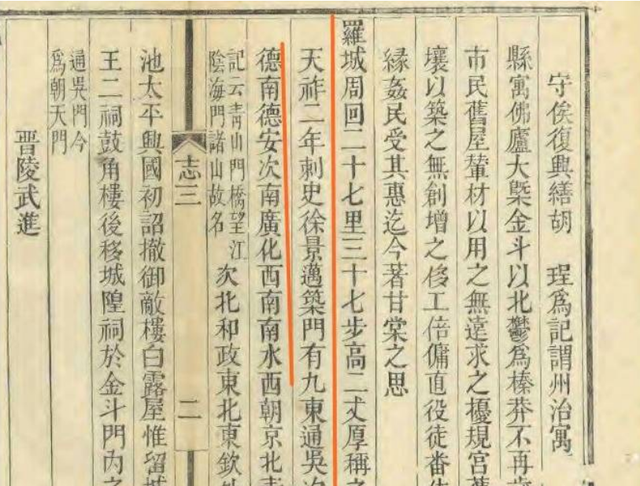 守俟復興繕胡　珵爲記謂州治寓
縣寓佛廬大槩金斗以北鬱爲榛莽不再
市民舊屋輦材以用之無遠求之擾規宮
壤以築之無創增之侈工倍傭直役徒番
緣姦民受其惠迄今著甘棠之思
羅城周回二十七里三十七步高二丈厚稱之
天祚二年刺史徐景邁築門有九東通吳次
德南德安次南廣化西南南水西朝京北青
記云青山門橋望江
陰海門諸山故名
次北和政東北東欽
志三
二
池太平興國初詔撤御敵樓白露屋惟留城
王二祠鼓角樓後移城隍祠於金斗門內之
通吳門今
爲朝天門
晋陵武進